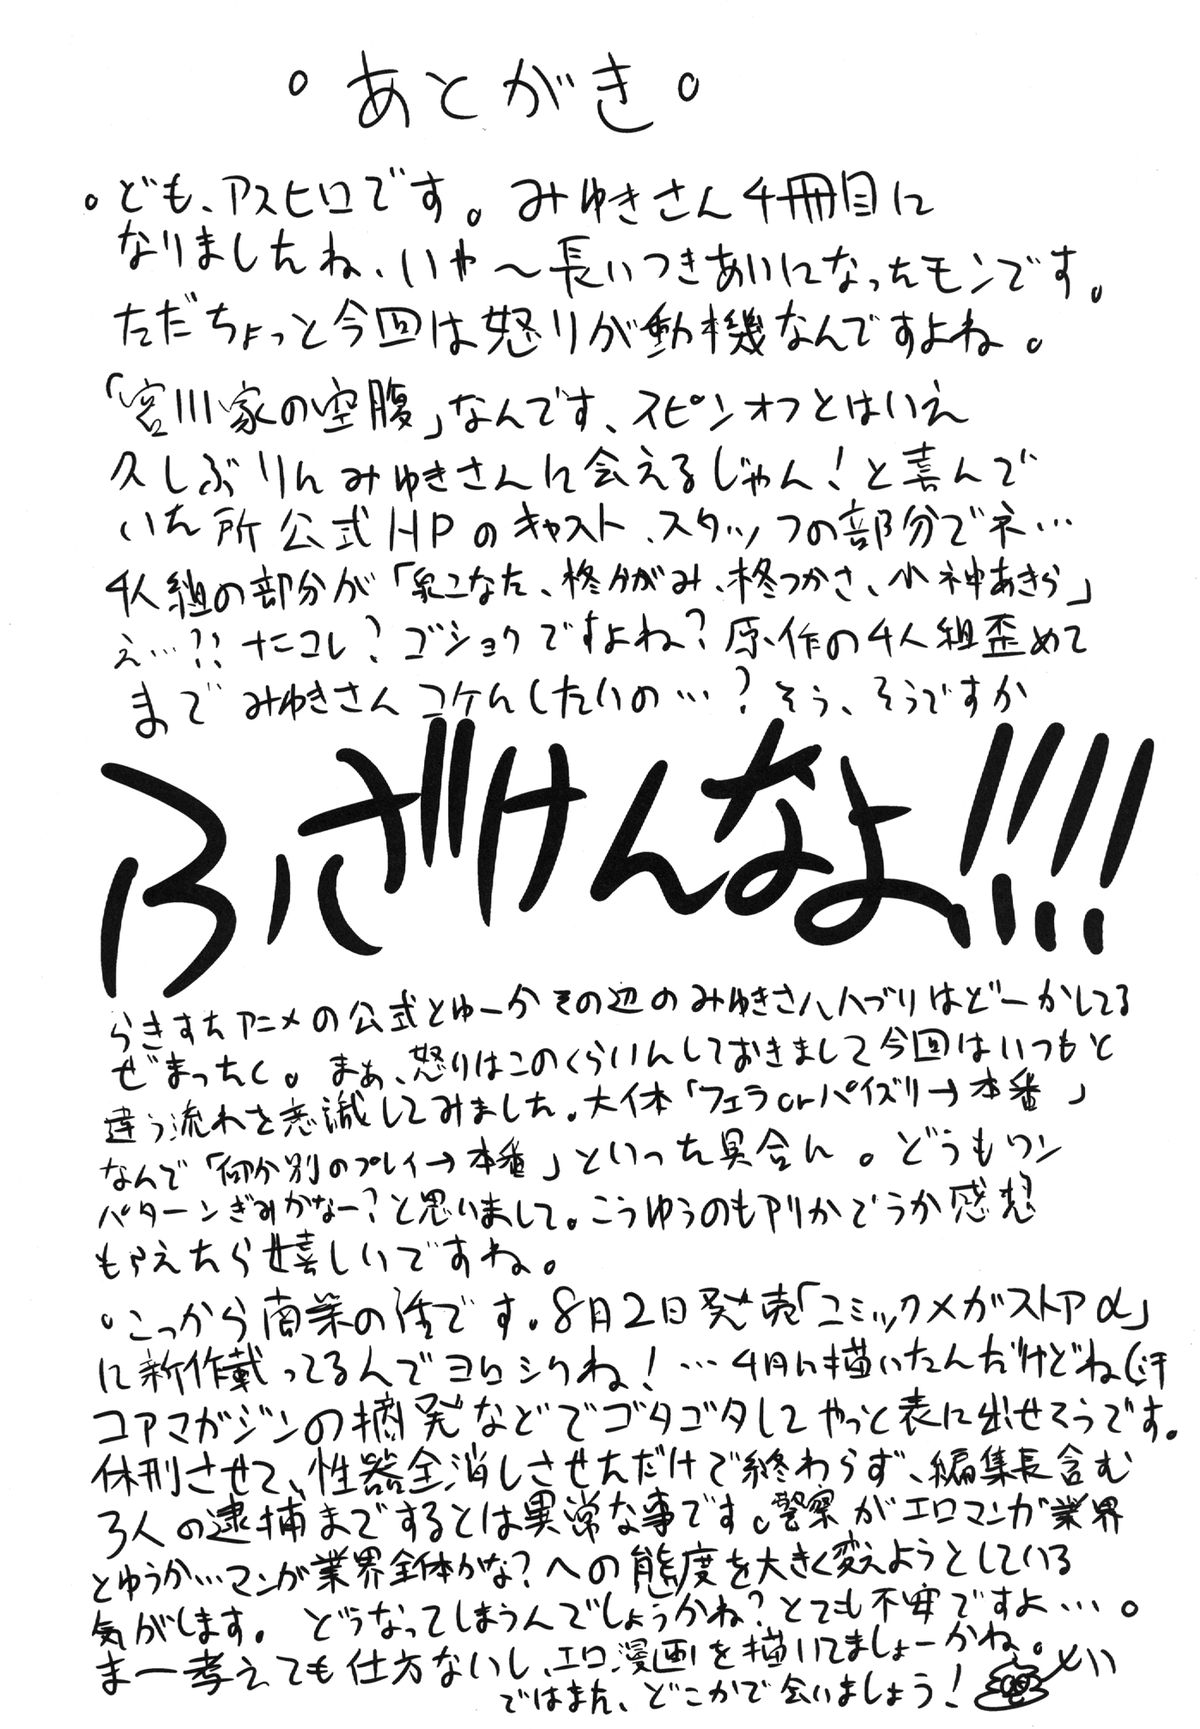 。あとがき。
。ども、アスヒロです。みゆきさん4冊目に
なりましたね、いや〜長いつきあいになったモンです。
ただちょっと今回は怒りが動機なんですよね。
「宮川家の空腹」なんです、スピンオフとはいえ
久しぶりにみゆきさんに会えるじゃん!と喜んで
いた所公式HPのキャスト、スタッフの部分でネ…
4人組の部分が「泉こなた、柊かがみ、柊つかさ、小神あきら」
え…??ナニコレ?ゴショクですよね?原作の4人組歪めて
までみゆきさんコケにしたいの…?そう、そうですか
ふざけんなよ!!!!
らきすたアニメの公式とゆーかその辺のみゆきさんハブりはどーかしてる
ぜまったく。まぁ、怒りはこのくらいにしておきまして今回はいつもと
違う流れを意識してみました。大体「フェラorパイズリ→本番」
なんで「何か別のプレイ→本番」といった具合に。どうもワン
パターンぎみかなー?と思いまして。こうゆうのもアリかどうか感想
もらえたら嬉しいですね。
。こっから商業の話です。8月2日発売「コミックメガストアα」
に新作載ってるんでヨロシクね!…4月に描いたんだけどね(汗
コアマガジンの摘発などでゴタゴタしてやっと表に出せそうです。
休刊させて、性器全消しさせただけで終わらず、編集長含む
3人の逮捕までするとは異常な事です。警察がエロマンガ業界
とゆうか…マンガ業界全体かな?への態度を大きく変えようとしている
気がします。どうなってしまうんでしょうかね?とても不安ですよ…。
ま一考えても仕方ないし、エロ漫画を描いてましょーかね。
ではまた、どこかで会いましょう!